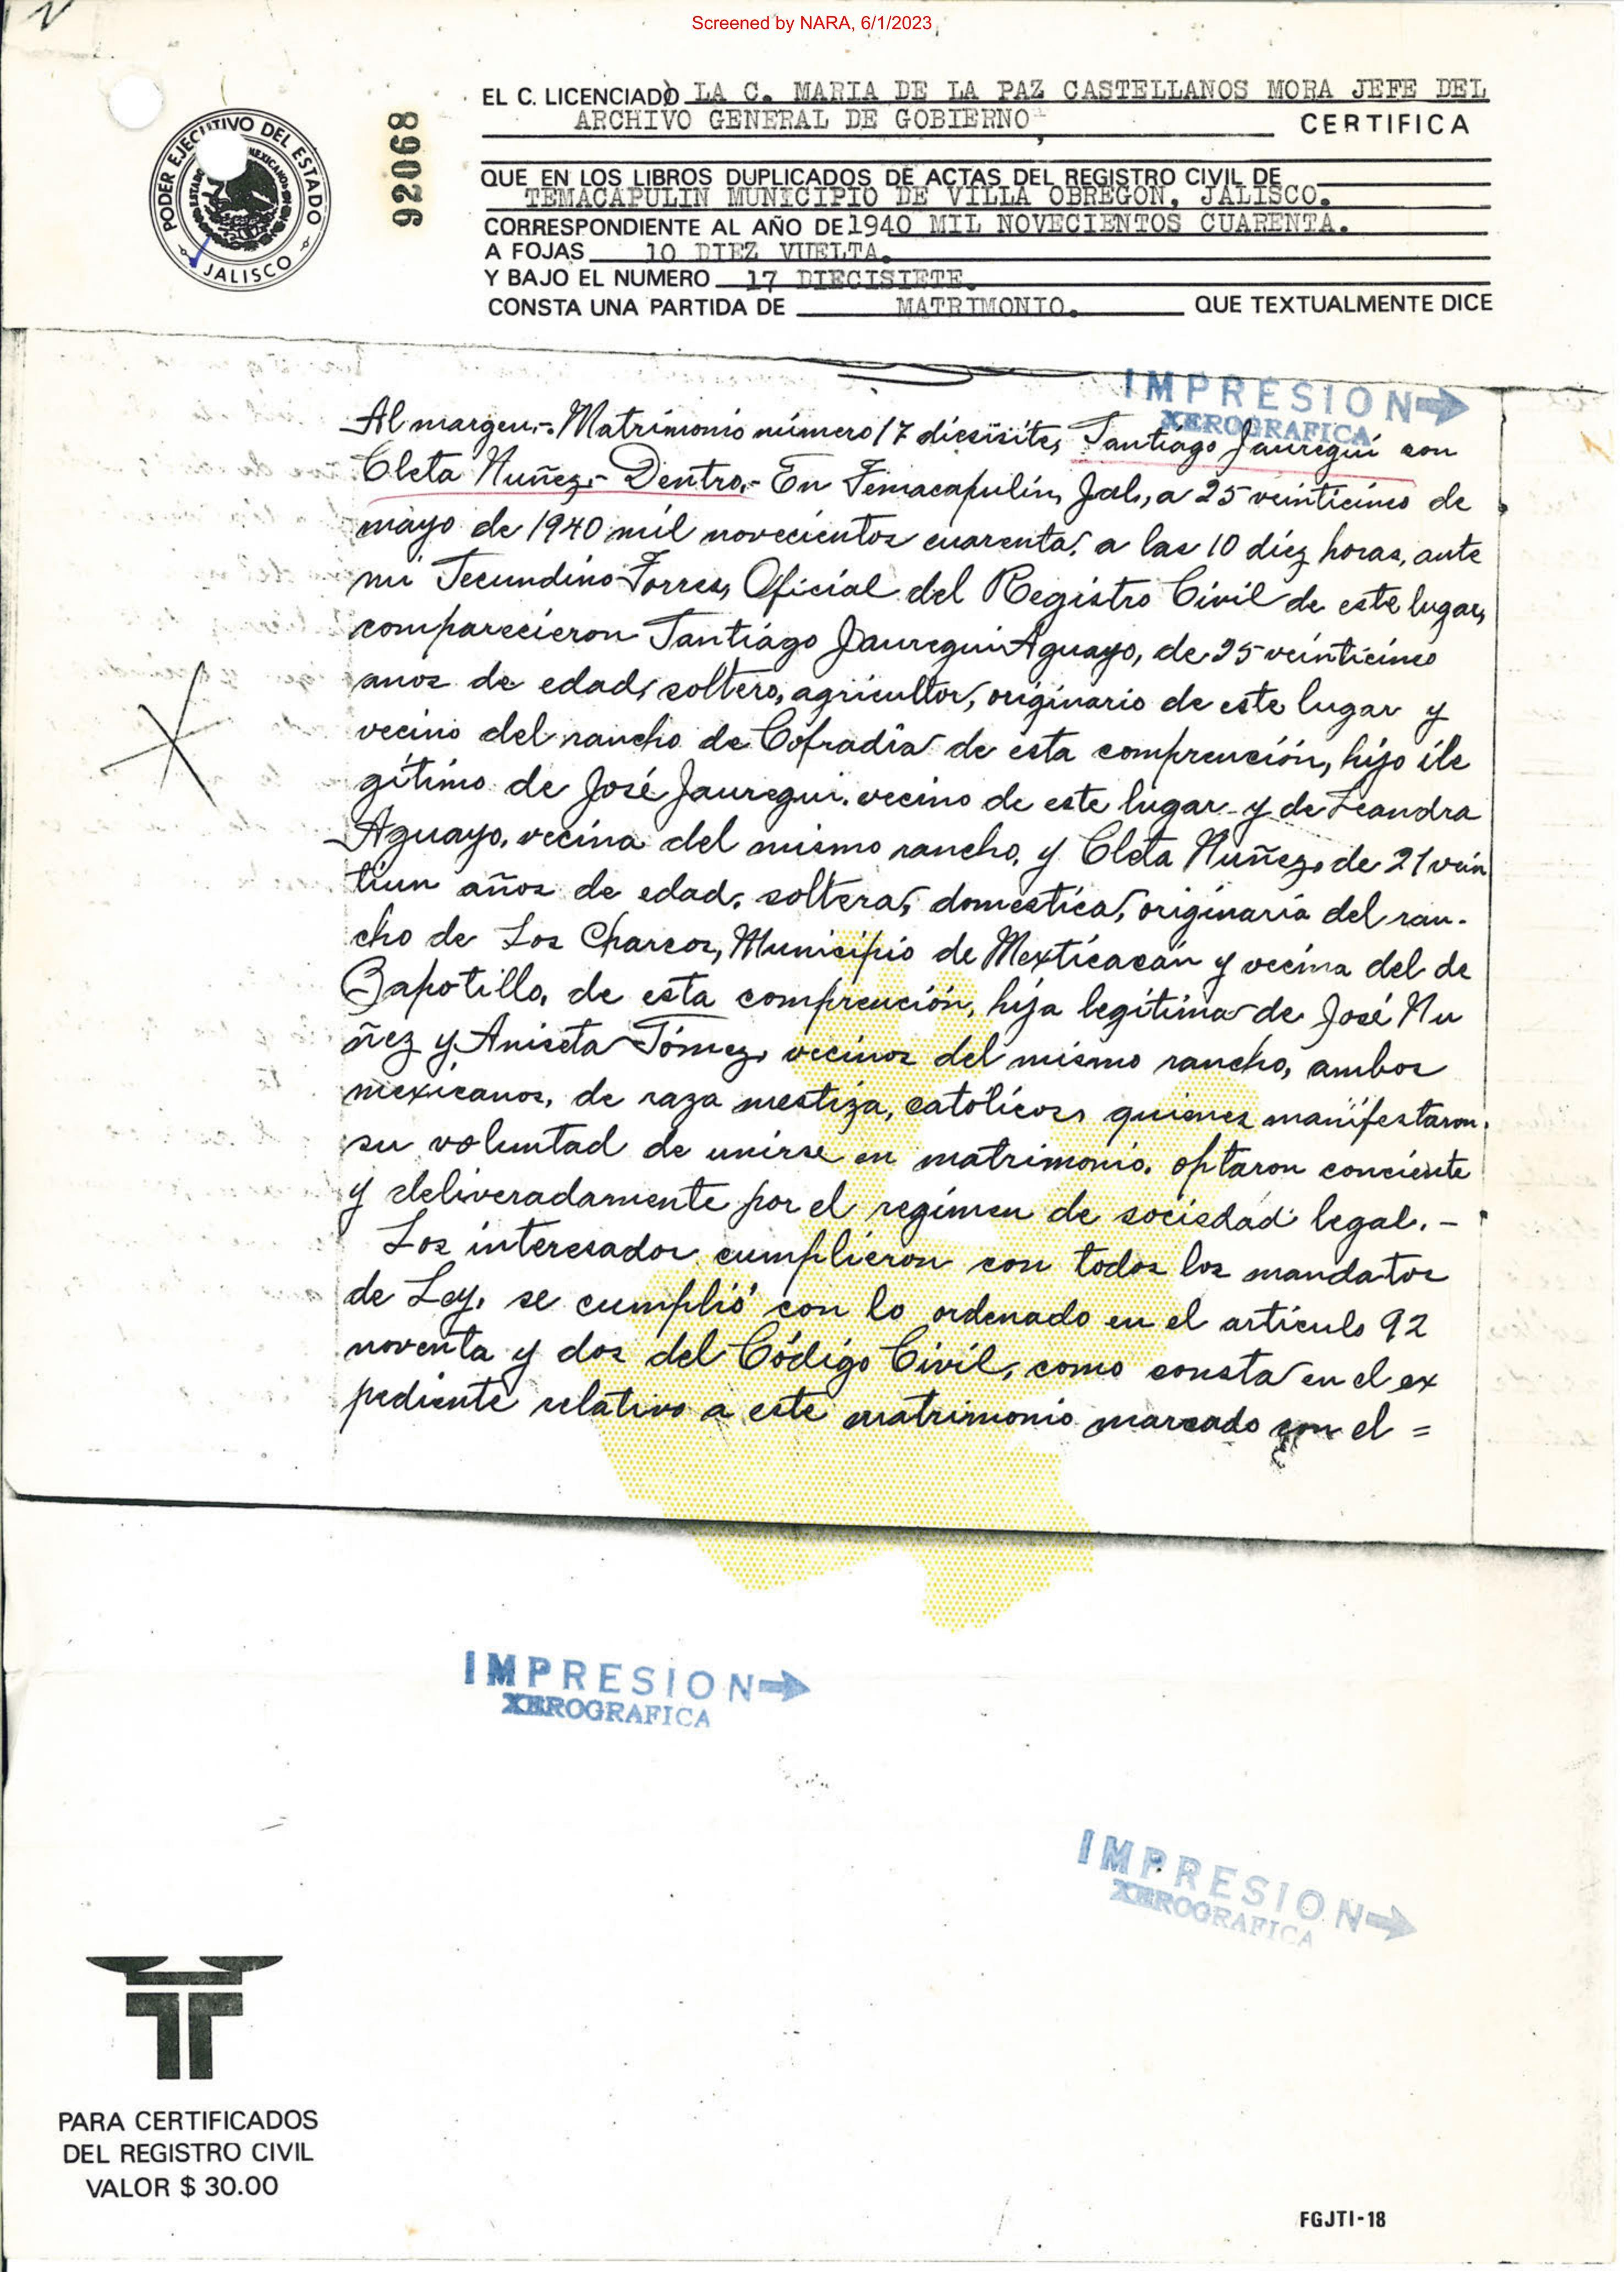 Screened by NARA, 6/1/2023
PODER EJECUTIVO DEL ESTADO
JALISCO
92068
EL C. LICENCIADO LA C. MARIA DE LA PAZ CASTELLANOS MORA JEFE DEL
ARCHIVO GENERAL DE GOBIERNO CERTIFICA
QUE EN LOS LIBROS DUPLICADOS DE ACTAS DEL REGISTRO CIVIL DE
TEMACAPULIN MUNICIPIO DE VILLA OBREGON, JALISCO.
CORRESPONDIENTE AL AÑO DE 1940 MIL NOVECIENTOS CUARENTA.
A FOJAS 10 DIEZ VUELTA.
Y BAJO EL NUMERO 17 DIECISIETE.
CONSTA UNA PARTIDA DE MATRIMONIO. QUE TEXTUALMENTE DICE
IMPRESION
XEROGRAFICA
Al margen.- Matrimonio número 17 diesisite, Santiago Jauregui con
Cleta Nuñez.- Dentro.- En Temacapulín, Jal., a 25 veinticinco de
mayo de 1940 mil novecientos cuarenta, a las 10 diez horas, ante
mi Secundino Torres, Oficial del Registro Civil de este lugar,
comparecieron Santiago Jauregui Aguayo, de 25 veinticinco
anos de edad, soltero, agricultor, originario de este lugar y
vecino del rancho de Cofradía de esta comprención, hijo ile
gítimo de José Jauregui, vecino de este lugar y de Leandra
Aguayo, vecina del mismo rancho, y Cleta Nuñez, de 21 vein
tiun años de edad, soltera, domestica, originaria del ran-
cho de Los Charcos, Municipio de Mexticacán y vecina del de
Zapotillo, de esta comprención, hija legítima de José Nu
ñez y Aniseta Gómez, vecinos del mismo rancho, ambos
mexicanos, de raza mestiza, católicos, quienes manifestaron
su voluntad de unirse en matrimonio. optaron conciente
y deliveradamente por el regímen de sociedad legal. -
Los interesados cumplieron con todos los mandatos
de Ley, se cumplió con lo ordenado en el artículo 92
noventa y dos del Código Civil, como consta en el ex
pediente relativo a este matrimonio marcado con el =
IMPRESION
XEROGRAFICA
IMPRESION
XEROGRAFICA
PARA CERTIFICADOS
DEL REGISTRO CIVIL
VALOR $ 30.00
FGJTI-18